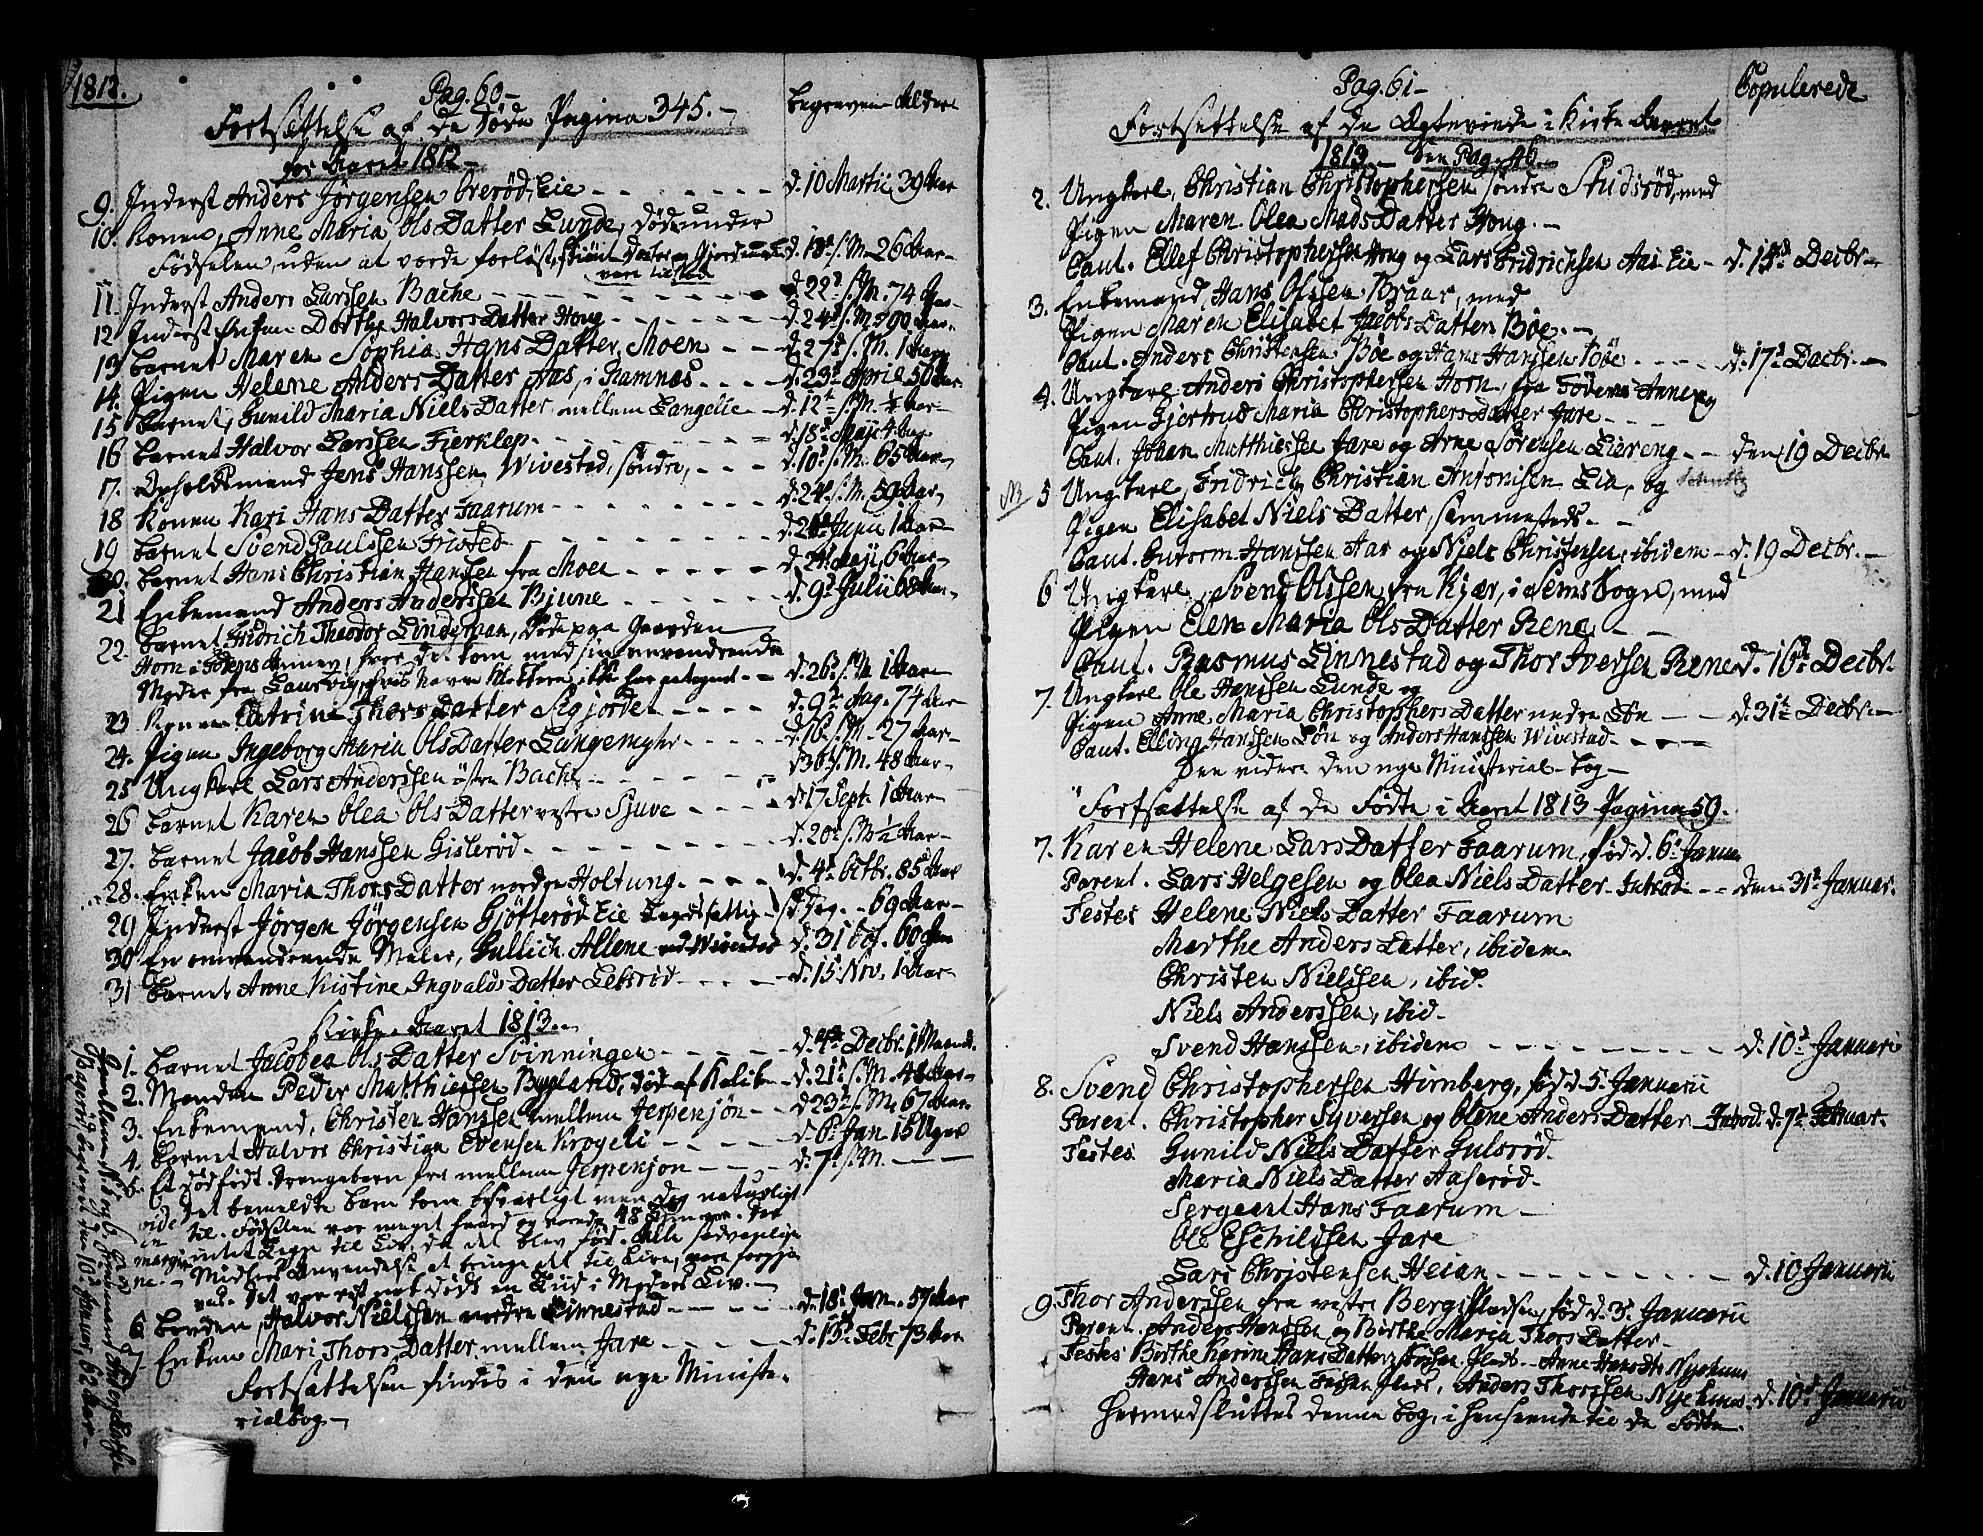 1813.
Pag. 60 -
Fortsættelse af de Døde Pagina 345. -
for Aaret 1812 -
begraven Alder
9. Inderst Anders Jörgensen Ererød, Eie - - - d. 10 Martii 39 Aar
10. Konen, Anne Maria Ols Datter Lunde, døde under
Födselen, uden at vorde forløst, skiönt Doctor og Gjordemoder d. 18d s. M. 26 Aar -
vare tilsted
11. Inderst Anders Larssen Bache - - - d. 22d s. M. 74 Aar -
12 Inderst Enken Dorthe Halvors Datter Houg - - - d. 24d s. M. 90 Aar -
13 Barnet Maren Sophia Hans Datter Moen - - - d. 27d s. M. 1 Aar
14. Pigen Helene Anders Datter Aas, i Ramnes - - - d. 23d April 50 Aar
15 Barnet, Gunild Maria Niels Datter mellem Langelie - d. 12t s. M. ¼ Aar -
16 Barnet Halvor Larssen Fierklep - - - d. 18d Maji 4 Aar
17. Opholdsmand Jens Hanssen Wivestad, söndre, - - - d. 10d s. M. 65 Aar
18 Konen Kari Hans Datter Faarum - - - d. 24d s. M. 59 Aar,
19 Barnet Svend Paulssen Fristed - - - Junii 1 Aar
20. Barnet Hans Christian Hanssen fra Moen - - - d. 24d Maji, 6 Aar -
21 Enkemand Anders Anderssen Bjune - - - d. 9d Julii 68 Aar -
22. Barnet Fridrich Theodor Lindeman, døde paa Gaarden
Horn i Födens Annex, hvor det kom med sin omvandrende
Moder fra Laurvig, hvis Navn Klokkeren ikke har antegnet - - d. 26d s. M. 1 Aar -
23 Konen Catrine Thors Datter Sigjordet - - - d. 9d Aug. 74 Aar
24. Pigen Ingeborg Maria Ols Datter Langemyhr - - - d. 16 s. M. 27 Aar -
25 Ungkarl Lars Anderssen östre Bache - - - d. 30 s. M. 48 Aar -
26 Barnet Karen Olea Ols Datter vestre Sjuve - - - d. 17 Sept. 1 Aar -
27. Barnet Jacob Hanssen Gislerød - - - d. 20d s. M. ½ Aar -
28. Enken Maria Thors Datter nordre Holtung - - - d. 4d Octbr. 85 Aar
29 Inderst Jörgen Jörgensen Gjötterød Eie Lægdsfattig - s. Dag. - 69 Aar -
30 En omvandrende Maler, Gullich Allene ved Wivestad d. 31 Oct. 60 Aar
31 Barnet Anne Kistine Ingvalds Datter Lebsrød - - - d. 15 Nov. 1 Aar -
Kirke-Aaret 1813. -
1. Barnet Jacobea Ols Datter Svinningen - - - d. 4de Decbr. 1 Maaned.
2. Manden Peder Matthiessen Bygland, död af Kolik - d. 21d s. M. 48 Aar -
3. Enkemand, Christen Hanssen mellem Jerpenjön - - d. 23d s. M. 67 Aar.
4. Barnet Halvor Christian Evensen Krogeli - - - d. 6d Jan. 15 Uger
5. Et dödfödt Drengebarn fra mellem Jerpenjon - - - d. 7d s. M. - - -
Det bemeldte Barn kom besværligt men dog naturligt
til. Födselen var meget haard og varede 48 Timer. Der
intet Tegn til Liv, da det blev föd. Alle sædvanlige
Midlers Anvendelse at bringe det til Live, vare forgjæ
ves. Det var vist nok dödt en Tiid i Moders Liv. -
vide in margine. -
6 Bonden, Halvor Nielssen nordre Linnestad - - - d. 18d Jan. 57 Aar
7 Enken Mari Thors Datter mellem Jare - - - d. 15d Febr 73 Aar
Fortsættelsen findes i den nye Ministe-
rialbog -
Imellem N. 5 og 6. Enkemand Anders
Bagerød begravet den 10d Januar, 62 Aar -
Pag. 61 -
Copulerede
Fortsættelse af de Ægteviede i Kirke Aaret
1813. - See Pag. 46.
2. Ungkarl, Christian Christophersen söndre Studsrød, med
Pigen Maren Olea Mads Datter Houg. -
Caut. Ellef Christophersen Houg og Lars Fridrichsen Aas Eie - d. Decbr. -
3. Enkemand, Hans Olssen Braar, med
Pigen Maren Elisabet Jacobs Datter Böe. -
Caut. Anders Christensen Böe og Hans Hanssen Böe - - - d. 17d Decbr. -
4. Ungkarl Anders Christophersen Horn, fra Födens Annex og
Pigen Gjertrud Maria Christophers Datter Jare - - -
Caut. Johan Matthiessen Jare og Arne Sörensen Liereng - - den 19 Decbr.
5 Ungkarl, Fridrich Christian Antonisen Lia, og
Pigen Elisabet Niels Datter, sammesteds. -
Caut. Gutorm Hanssen Aar og Niels Christensen, ibidem - d. 19 Decbr. -
6 Ungkarl, Svend Olssen fra Kjær, i Sems Sogn, med
Pigen Elen Maria Ols Datter Rene - -
Caut. Rasmus Linnestad og Thor Iversen Rene d. 16d Decbr.
7. Ungkarl Ole Hanssen Lunde og
Pigen Anne Maria Christophers Datter nedre Lön - - d. 31te Decbr. -
Caut. Elling Hanssen Lön og Anders Hanssen Wivestad - - -
See videre den nye Ministerial-bog -
Fortsættelse af de Födte i Aaret 1813 Pagina 59.
7. Karen Helene Lars Datter Faarum, föd d. 6d Januar
Parent. Lars Helgesen og Olea Niels Datter - Introd - - den 31te Januar.
Testes Helene Niels Datter Faarum
Marthe Anders Datter, ibidem
Christen Nielssen, ibid.
Niels Anderssen, ibid -
Svend Hanssen, ibidem - - - d. 10d Januarii
8. Svend Christophersen Hirnberg, föd d. 5 Januarii
Parent. Christopher Syversen og Olene Anders Datter - Introd. d. 7d Februar.
Testes Gunild Niels Datter Gulsrød.
Maria Niels Datter Aaserød.
Sergeant Hans Faarum -
Ole Eschildsen Jare
Lars Christensen Heian - - - d. 10 Januarii
9. Thor Anderssen fra vestre Bergs Pladsen, föd d. 3d Januarii
Parent. Anders Hanssen og Birthe Maria Thors Datter -
Testes Birthe Karine Hans Datter Plads - Anne Hansdtr Nyehuus
Hans Anderssen Plads, Anders Thorssen Nyehuus. d. 10d Januarii
Hermed sluttes denne Bog, i Henseende til de Födte.